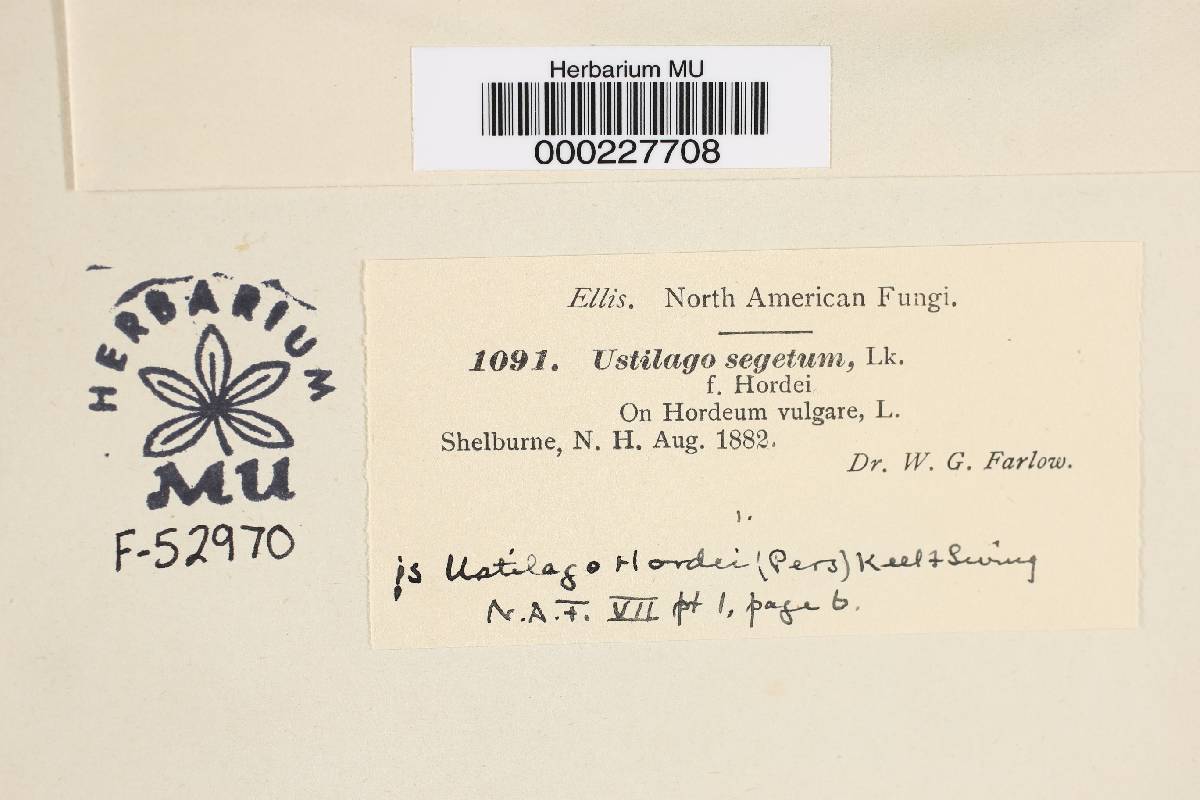 Herbarium MU
000227708
HERBARIUM
MU
F-52970
Ellis. North American Fungi.
1091. Ustilago segetum, Lk.
f. Hordei
On Hordeum vulgare, L.
Shelburne, N. H. Aug. 1882.
Dr. W. G. Farlow.
1.
is Ustilago Hordei (Pers) Kell & Swing
N.A.F. VII pt 1, page 6.